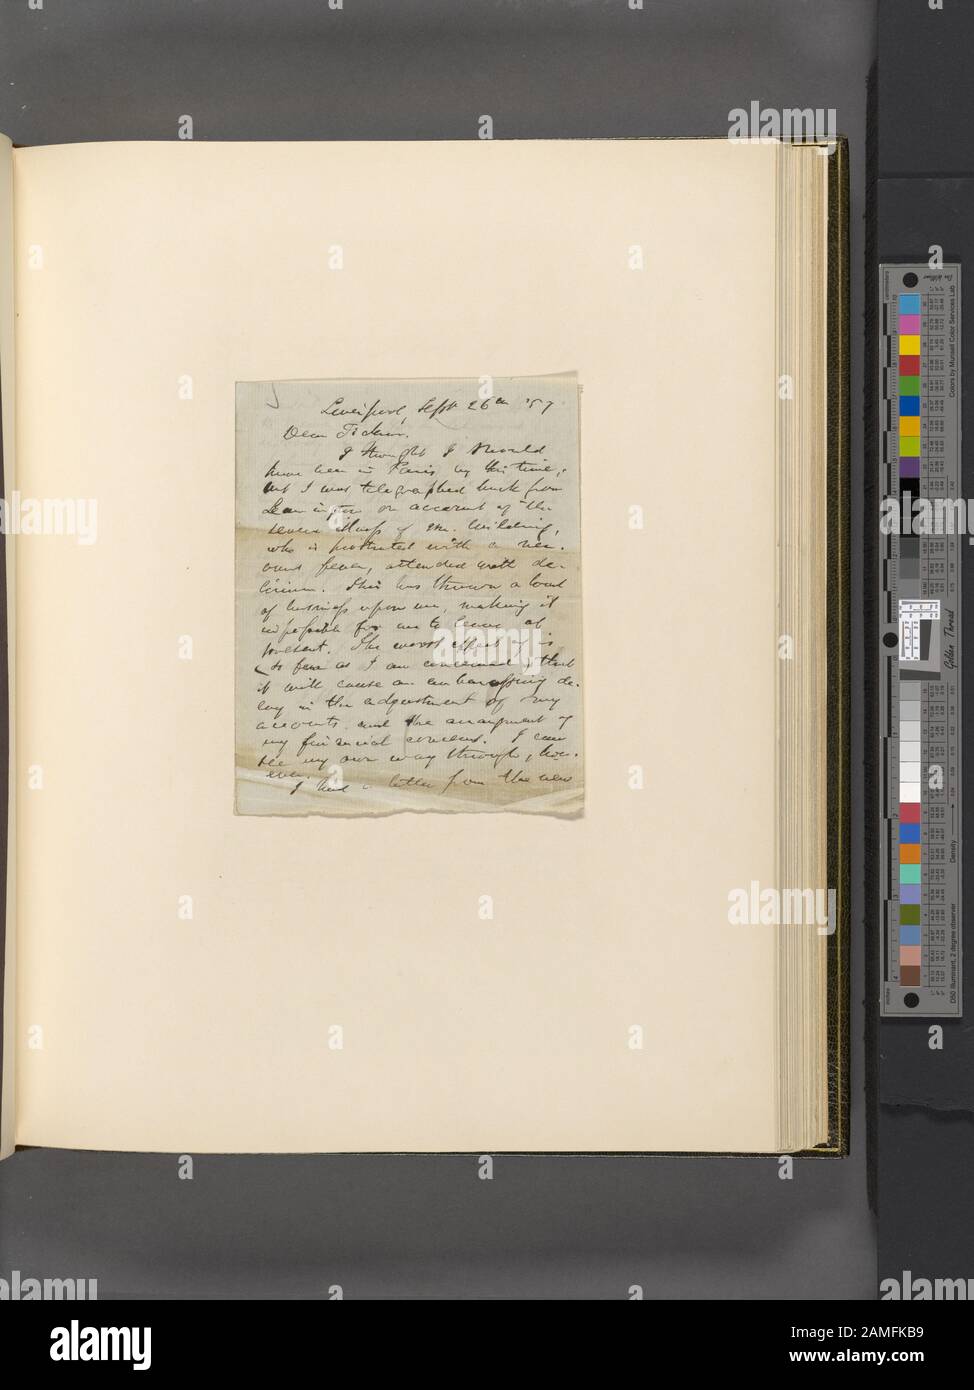 Liverpool, Sept 26th '57
Dear Ticknor,
I thought I should
have been in Paris by this time;
but I was telegraphed back from
Leamington on account of the
severe illness of Mr. Wilding,
who is prostrated with a ner-
vous fever, attended with de-
lirium. This has thrown a load
of business upon me, making it
impossible for me to leave at
present. The worst effect of is
so far as I am concerned, that
it will cause an embarassing de-
lay in the adjustment of my
accounts and the arrangement of
my financial concerns. I can
see my own way through, how-
ever.
I had a letter from the new
alamy
Image ID: 2AMFKB9
www.alamy.com